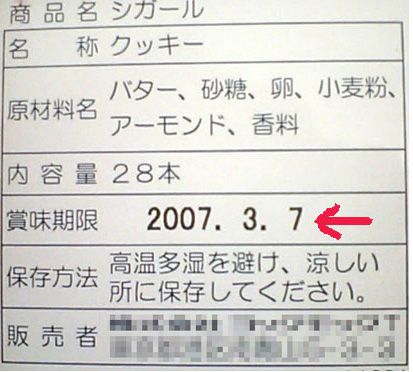 商品名 シガール
名称 クッキー
原材料名 バター、砂糖、卵、小麦粉、
アーモンド、香料
内容量 28本
賞味期限 2007. 3. 7
保存方法 高温多湿を避け、涼しい
所に保存してください。
販売者